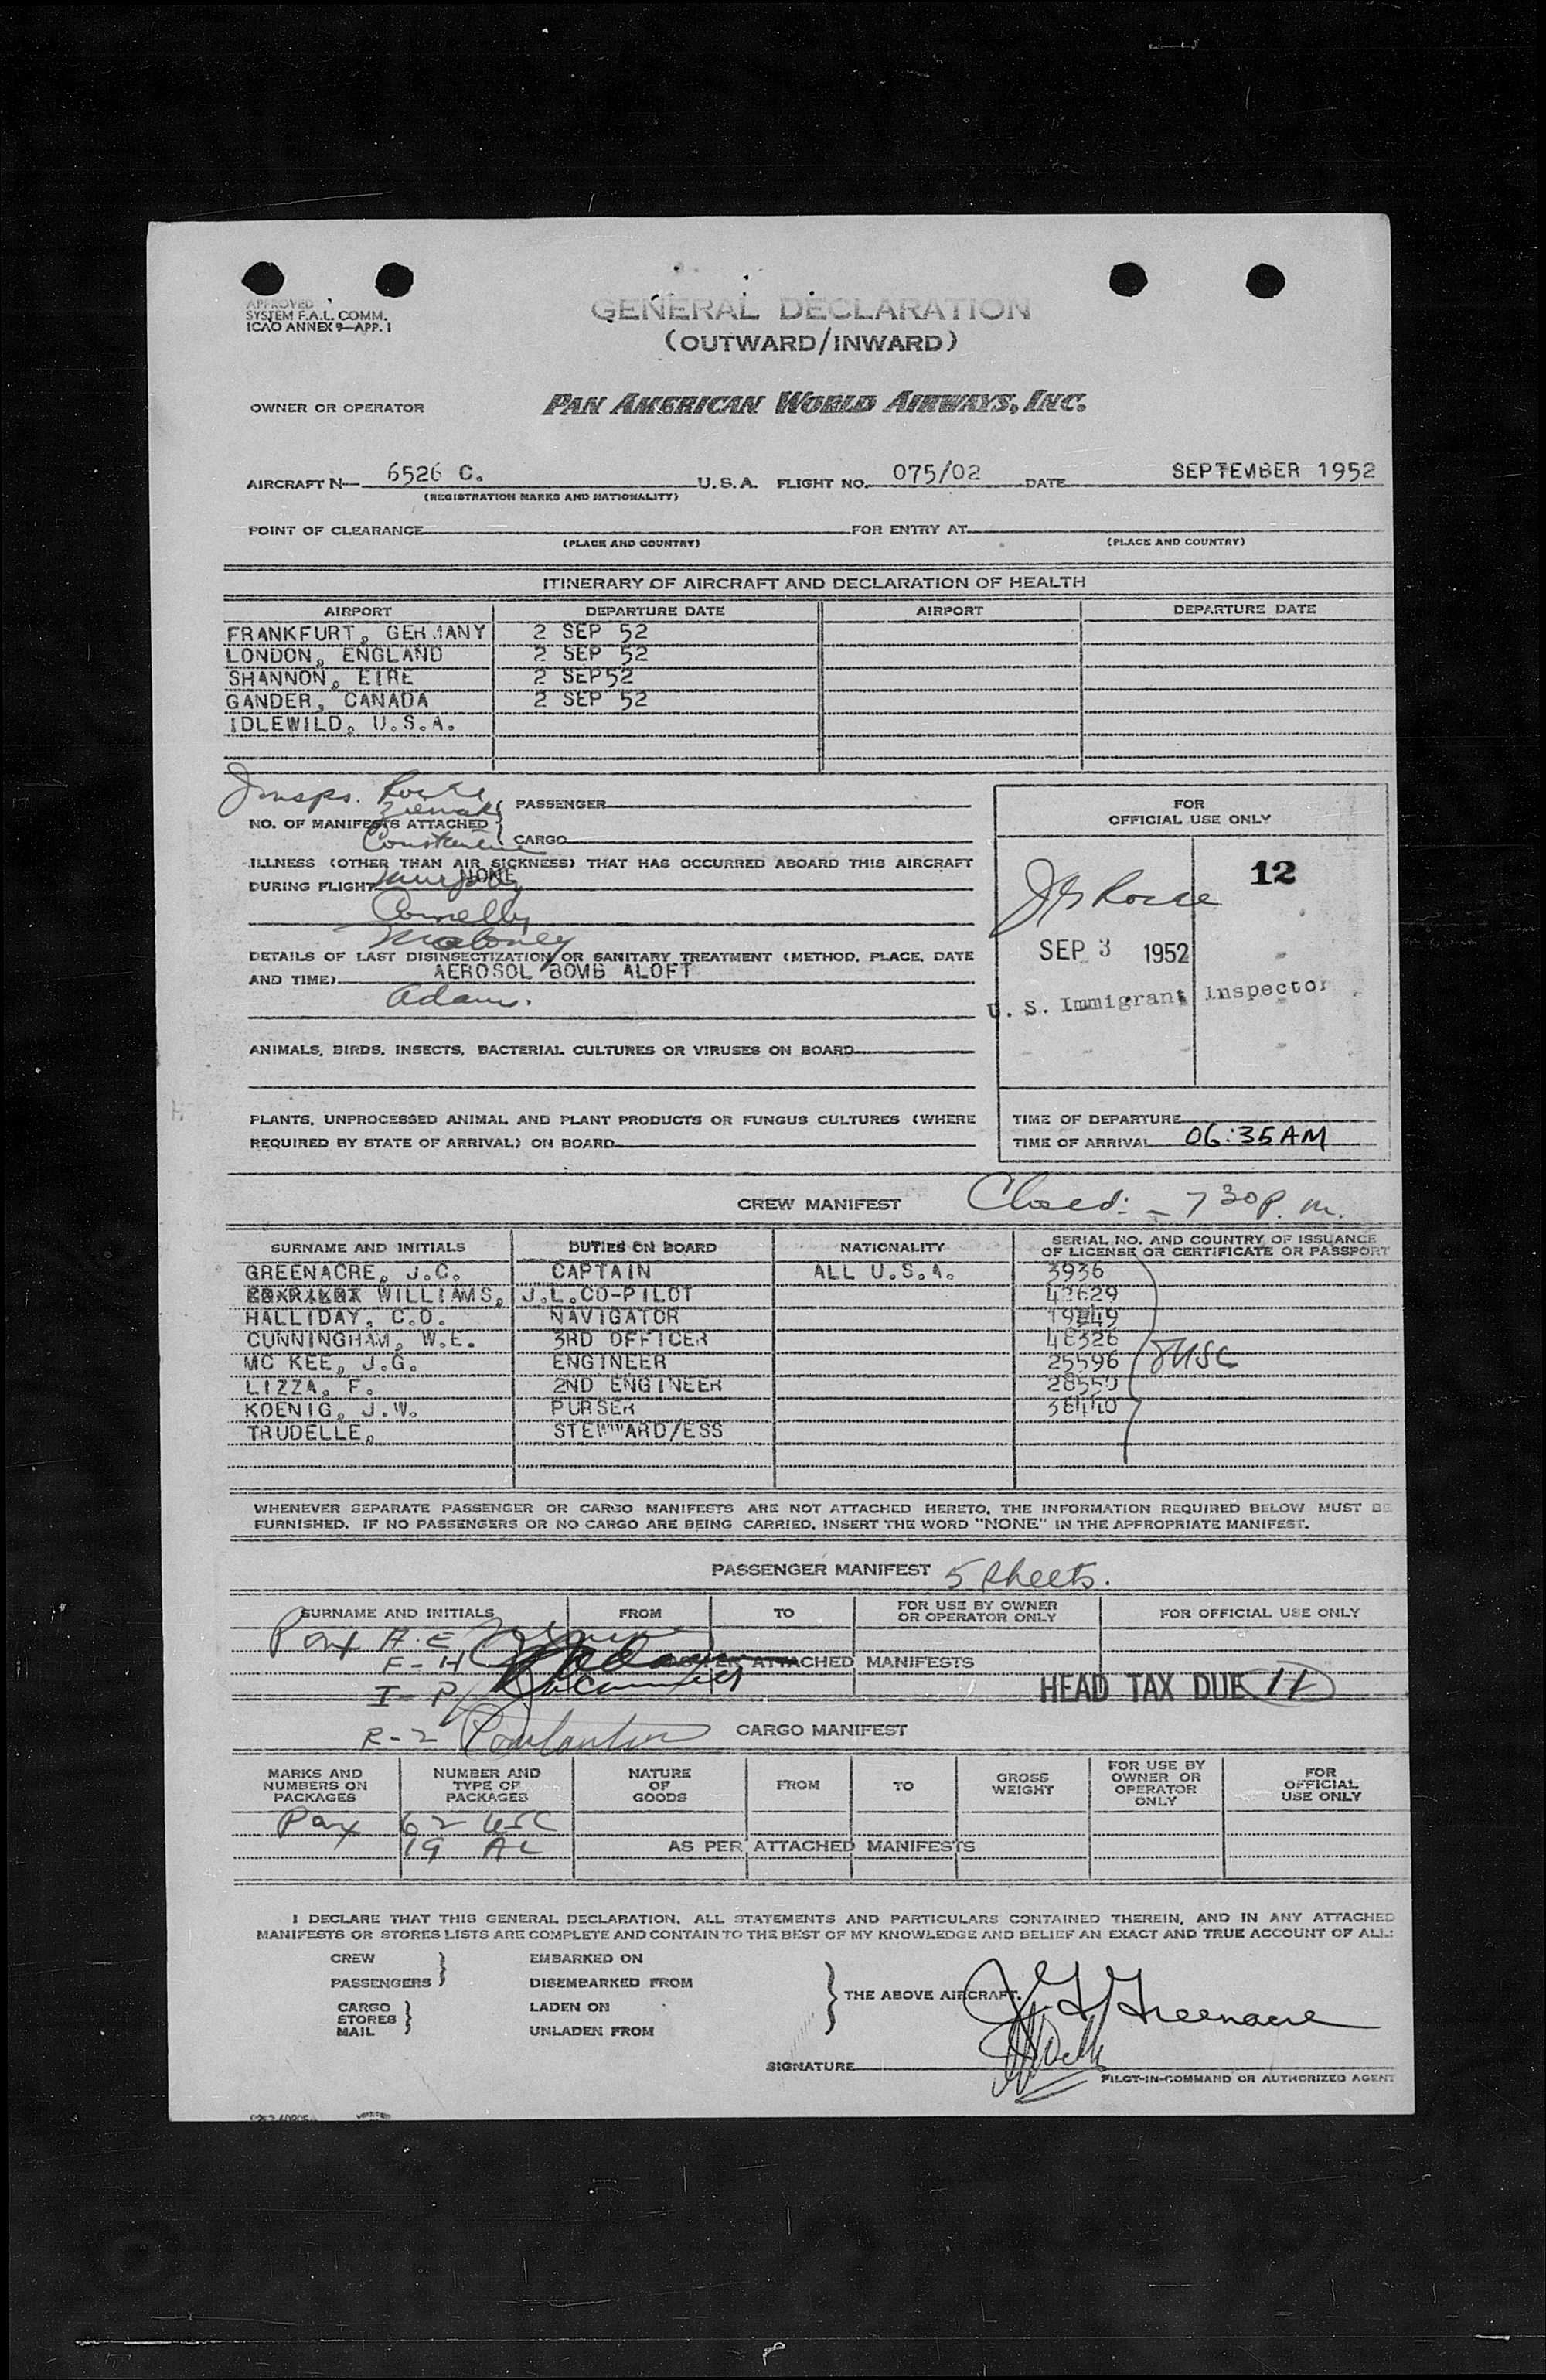 APPROVED
SYSTEM F.A.L. COMM.
ICAO ANNEX 9—APP. I
GENERAL DECLARATION
(OUTWARD/INWARD)
OWNER OR OPERATOR PAN AMERICAN WORLD AIRWAYS, INC.
AIRCRAFT N— 6526 C. U.S.A. FLIGHT NO. 075/02 DATE SEPTEMBER 1952
(REGISTRATION MARKS AND NATIONALITY)
POINT OF CLEARANCE FOR ENTRY AT
(PLACE AND COUNTRY) (PLACE AND COUNTRY)
ITINERARY OF AIRCRAFT AND DECLARATION OF HEALTH
AIRPORT DEPARTURE DATE AIRPORT DEPARTURE DATE
FRANKFURT, GERMANY 2 SEP 52
LONDON, ENGLAND 2 SEP 52
SHANNON, EIRE 2 SEP52
GANDER, CANADA 2 SEP 52
IDLEWILD, U.S.A.
Insps.
PASSENGER
NO. OF MANIFESTS ATTACHED
CARGO
ILLNESS (OTHER THAN AIR SICKNESS) THAT HAS OCCURRED ABOARD THIS AIRCRAFT
DURING FLIGHT Murphy NONE
Connelly
Maloney
DETAILS OF LAST DISINSECTIZATION OR SANITARY TREATMENT (METHOD, PLACE, DATE
AND TIME) AEROSOL BOMB ALOFT
Adam.
ANIMALS, BIRDS, INSECTS, BACTERIAL CULTURES OR VIRUSES ON BOARD
PLANTS, UNPROCESSED ANIMAL AND PLANT PRODUCTS OR FUNGUS CULTURES (WHERE
REQUIRED BY STATE OF ARRIVAL) ON BOARD
FOR
OFFICIAL USE ONLY
12
SEP 3 1952
U. S. Immigrant Inspector
TIME OF DEPARTURE
TIME OF ARRIVAL 06:35AM
CREW MANIFEST Closed: – 7 30 P. m.
SURNAME AND INITIALS DUTIES ON BOARD NATIONALITY SERIAL NO. AND COUNTRY OF ISSUANCE
OF LICENSE OR CERTIFICATE OR PASSPORT
GREENACRE, J.C. CAPTAIN ALL U.S.A. 3936
WILLIAMS, J.L. CO-PILOT 42629
HALLIDAY, C.O. NAVIGATOR
CUNNINGHAM, W.E. 3RD OFFICER 48326
MC KEE, J.G. ENGINEER 25596 8USC
LIZZA, F. 2ND ENGINEER 28550
KOENIG, J.W. PURSER
TRUDELLE, STEWWARD/ESS
WHENEVER SEPARATE PASSENGER OR CARGO MANIFESTS ARE NOT ATTACHED HERETO, THE INFORMATION REQUIRED BELOW MUST BE
FURNISHED. IF NO PASSENGERS OR NO CARGO ARE BEING CARRIED, INSERT THE WORD "NONE" IN THE APPROPRIATE MANIFEST.
PASSENGER MANIFEST 5 sheets.
SURNAME AND INITIALS FROM TO FOR USE BY OWNER
OR OPERATOR ONLY FOR OFFICIAL USE ONLY
Pax A-E
F-H AS PER ATTACHED MANIFESTS
I-P HEAD TAX DUE 11
R-Z CARGO MANIFEST
MARKS AND
NUMBERS ON
PACKAGES NUMBER AND
TYPE OF
PACKAGES NATURE
OF
GOODS FROM TO GROSS
WEIGHT FOR USE BY
OWNER OR
OPERATOR
ONLY FOR
OFFICIAL
USE ONLY
Pax 62 USC
19 AL AS PER ATTACHED MANIFESTS
I DECLARE THAT THIS GENERAL DECLARATION, ALL STATEMENTS AND PARTICULARS CONTAINED THEREIN, AND IN ANY ATTACHED
MANIFESTS OR STORES LISTS ARE COMPLETE AND CONTAIN TO THE BEST OF MY KNOWLEDGE AND BELIEF AN EXACT AND TRUE ACCOUNT OF ALL:
CREW EMBARKED ON
PASSENGERS DISEMBARKED FROM
THE ABOVE AIRCRAFT. Greenacre
CARGO LADEN ON
STORES
MAIL UNLADEN FROM
SIGNATURE
PILOT-IN-COMMAND OR AUTHORIZED AGENT